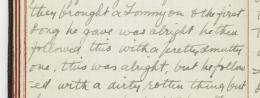 they brought a Tommy on & the first
song he gave was alright he then
followed this with a pretty smutty
one, this was alright, but he follow
ed with a dirty, rotten thing but